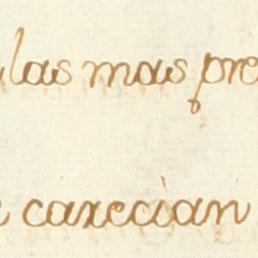 las mas pre
carecian